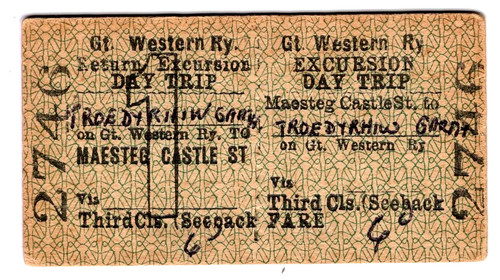 2746
Gt. Western Ry.
Return Excursion
DAY TRIP
TROEDYRHIW GARTH
on Gt. Western Ry. TO
MAESTEG CASTLE ST
Via
Third Cls. (See back
6D
Gt. Western Ry
EXCURSION
DAY TRIP
Maesteg Castle St. to
TROEDYRHIW GARTH
on Gt. Western Ry
Via
Third Cls. (See back
FARE 6D
2746